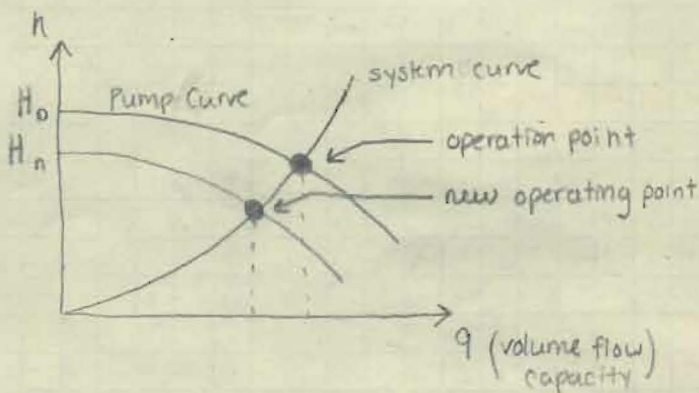 h
system curve
H₀
Pump Curve
operation point
Hn
new operating point
q (volume flow)
capacity